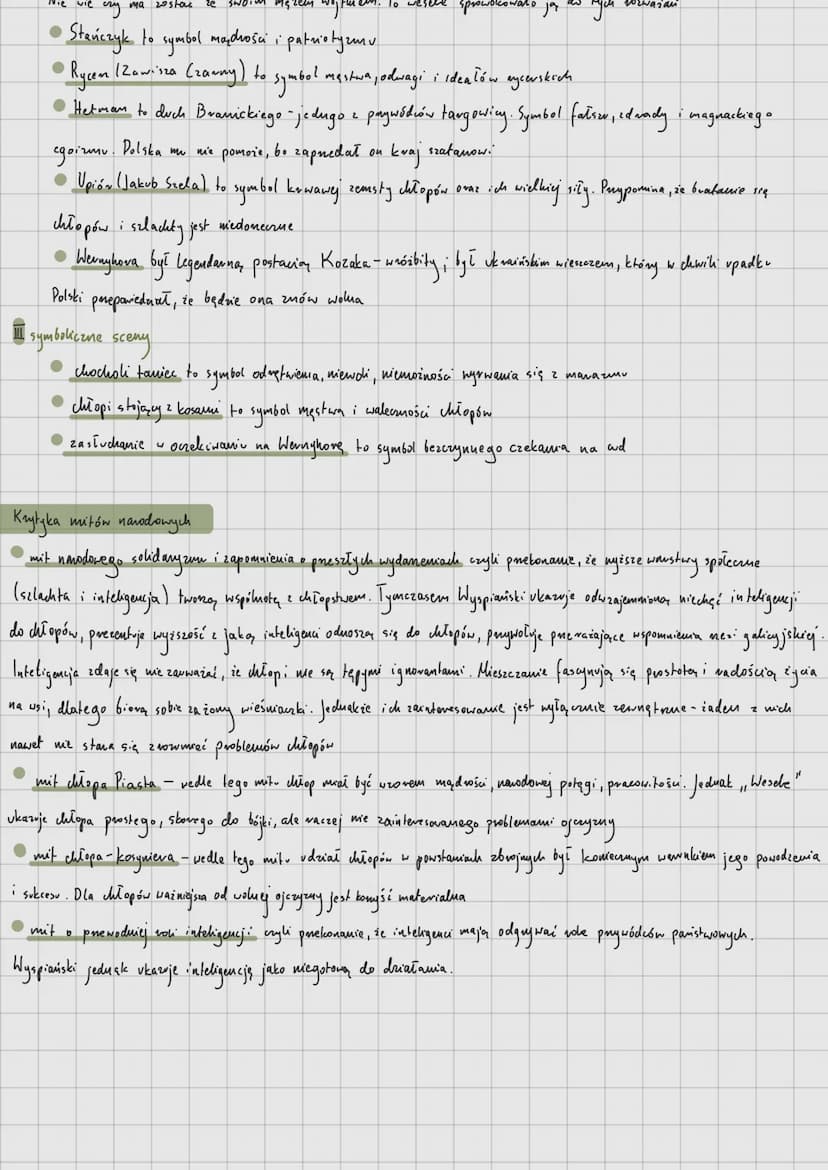 Nie wie czy ma zostać ze swoim mężem Wojtkiem. To wesele sprowokowało ją do tych rozważań
Stańczyk to symbol mądrości i patriotyzmu
Rycerz (Zawisza Czarny) to symbol męstwa, odwagi i ideałów rycerskich
Hetman to duch Branickiego - jednego z przywódców targowicy. Symbol fałszu, zdrady i magnackiego
egoizmu. Polska mu nie pomoże, bo zaprzedał on kraj szatanowi
Upiór (Jakub Szela) to symbol krwawej zemsty chłopów oraz ich wielkiej siły. Przypomina, że bratanie się
chłopów i szlachty jest niedorzeczne
Wernyhora był legendarną postacią Kozaka - wróżbity; był ukraińskim wieszczem, który w chwili upadku
Polski przepowiedział, że będzie ona znów wolna
III symboliczne sceny
chocholi taniec to symbol odrętwienia, niewoli, niemożności wyrwania się z marazmu
chłopi stojący z kosami to symbol męstwa i waleczności chłopów
zasłuchanie w oczekiwaniu na Wernyhorę to symbol bezczynnego czekania na cud
Krytyka mitów narodowych
mit narodowego solidaryzmu i zapomnienia o przeszłych wydarzeniach czyli przekonanie, że wyższe warstwy społeczne
(szlachta i inteligencja) tworzą wspólnotę z chłopstwem. Tymczasem Wyspiański ukazuje odwzajemnioną niechęć inteligencji
do chłopów, prezentuje wyższość z jaką inteligenci odnoszą się do chłopów, przywołuje przerażające wspomnienia rzezi galicyjskiej.
Inteligencja zdaje się nie zauważać, że chłopi nie są tępymi ignorantami. Mieszczanie fascynują się prostotą i radością życia
na wsi, dlatego biorą sobie za żony wieśniaczki. Jednakże ich zainteresowanie jest wyłącznie zewnętrzne - żaden z nich
nawet nie stara się zrozumieć problemów chłopów
mit chłopa Piasta - wedle tego mitu chłop miał być wzorem mądrości, narodowej potęgi, pracowitości. Jednak „Wesele"
ukazuje chłopa prostego, skorego do bójki, ale raczej nie zainteresowanego problemami ojczyzny
mit chłopa-kosyniera - wedle tego mitu udział chłopów w powstaniach zbrojnych był koniecznym warunkiem jego powodzenia
i sukcesu. Dla chłopów ważniejsza od wolnej ojczyzny jest korzyść materialna
mit o przewodniej roli inteligencji czyli przekonanie, że inteligenci mają odgrywać role przywódców państwowych.
Wyspiański jednak ukazuje inteligencję jako niegotową do działania.